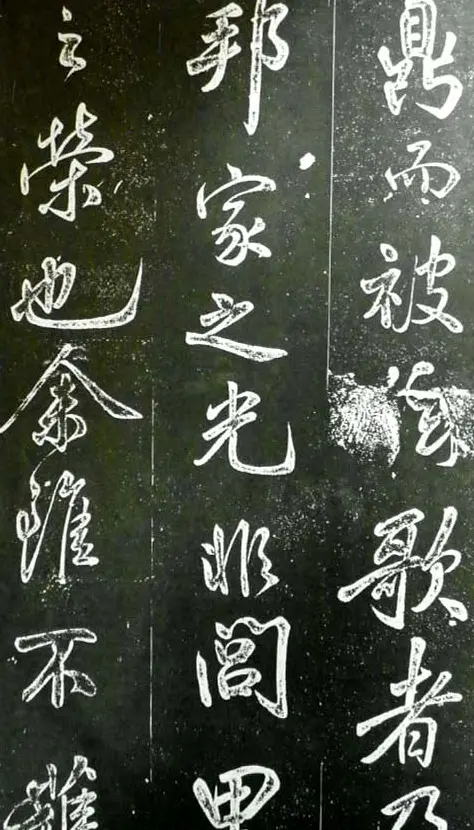 鼎而被歌者乃
邦家之光非閭里
之榮也余雖不獲